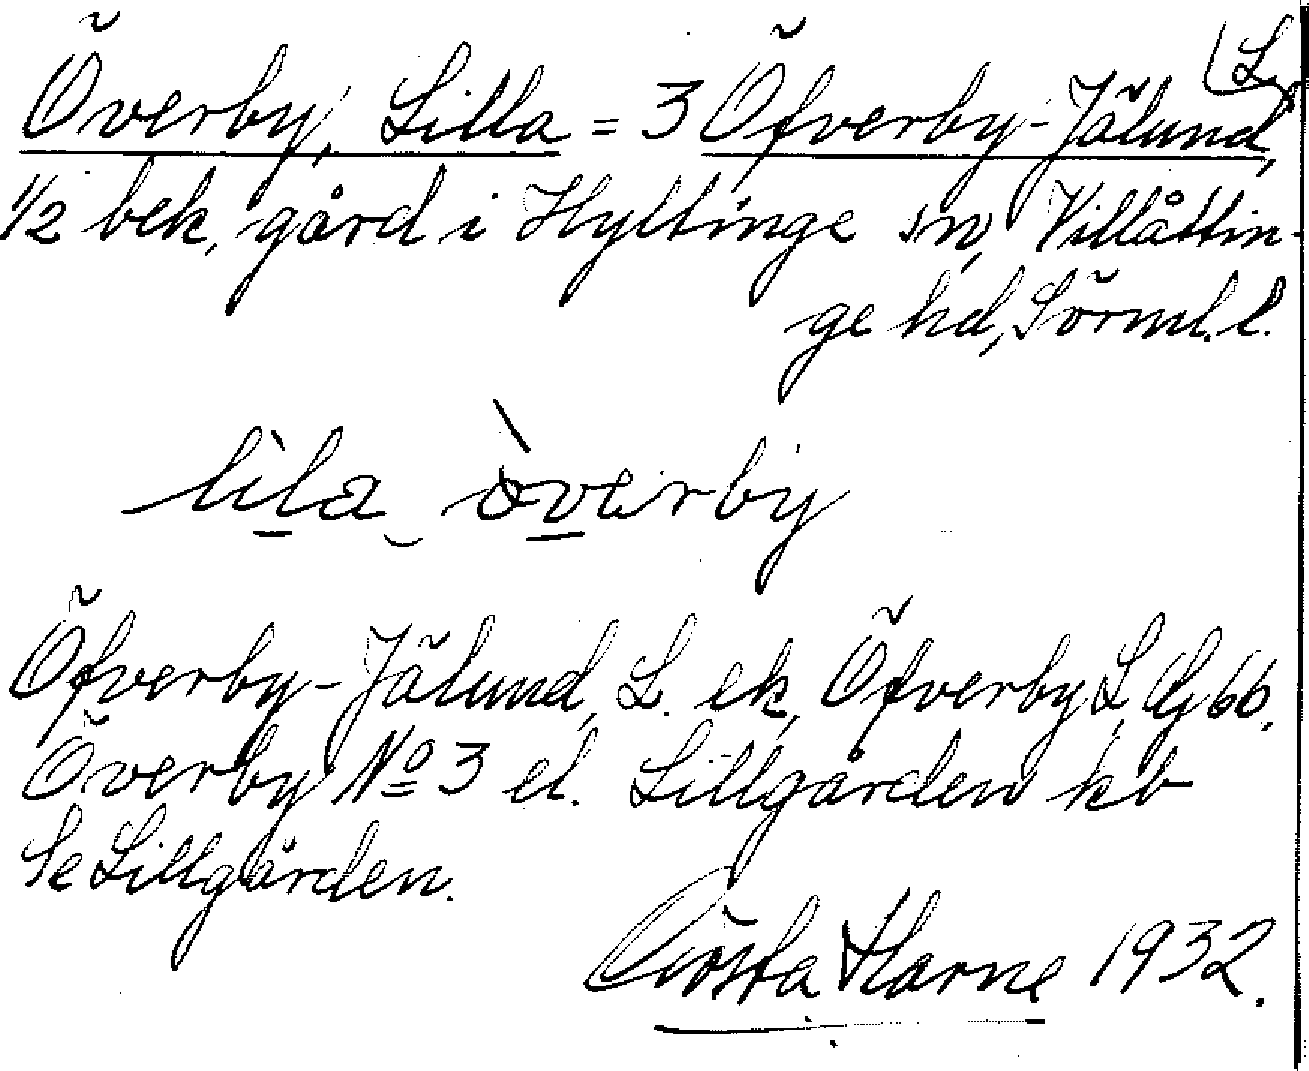 Överby, Lilla = 3 Öfverby-Jälund, (L.
1/2 bek. gård i Hyltinge sn, Villåttin-
ge hd, Sörml. l.
lìla òverby
Öfverby-Jälund, L. ek, Öfverby, L. Gj 66.
Överby No 3 el. Lillgården kb
Se Lillgården.
Gösta Harne 1932.